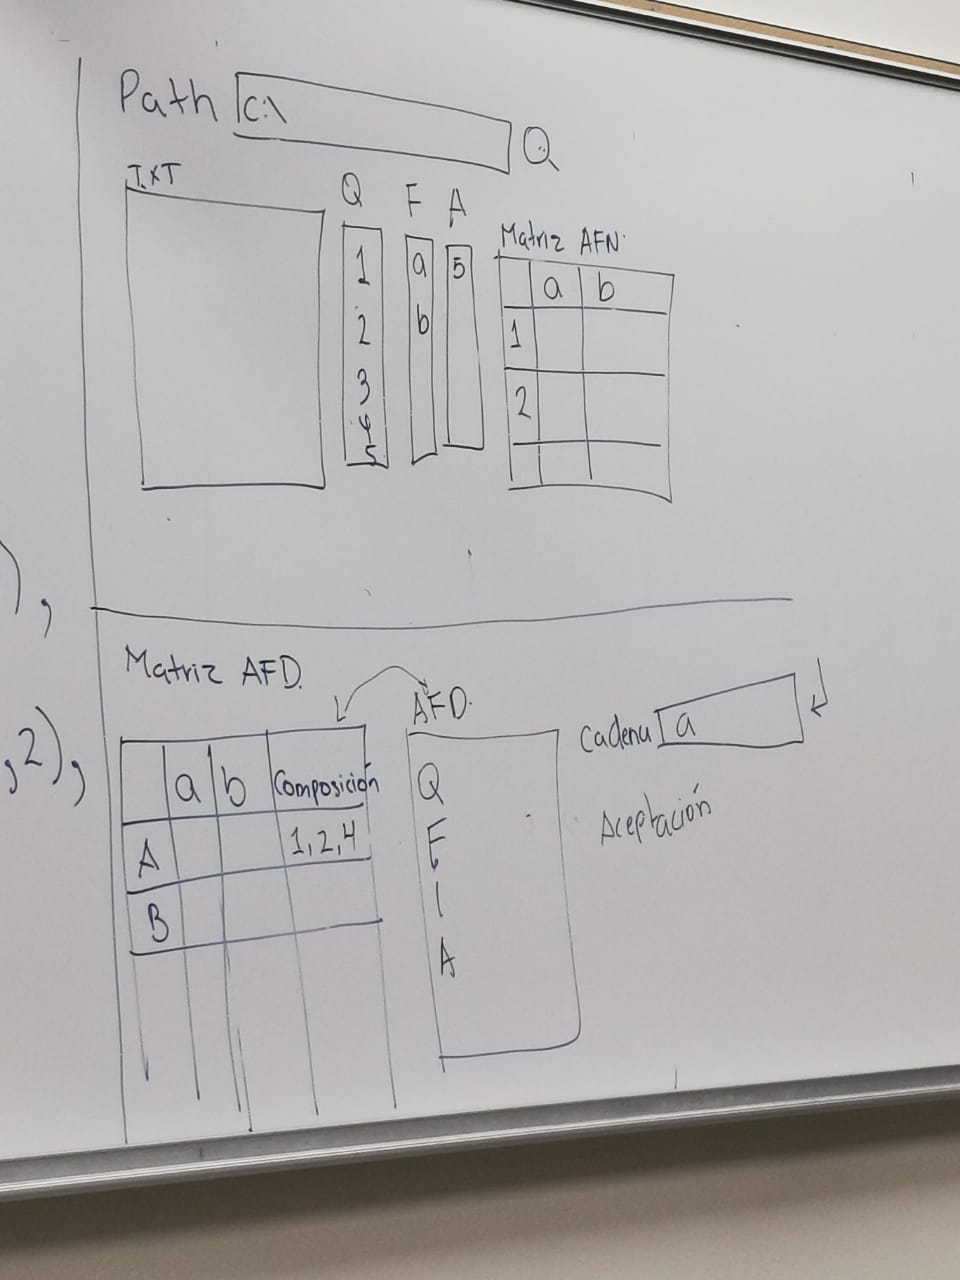 Path C:\
TXT
Q F A
Matriz AFN.
1 a 5
2 b
3
4
5
a b
1
2
),
,2),
Matriz AFD.
AFD.
a b Composición
A 1,2,4
B
Q
F
I
A
Cadena a
Aceptación